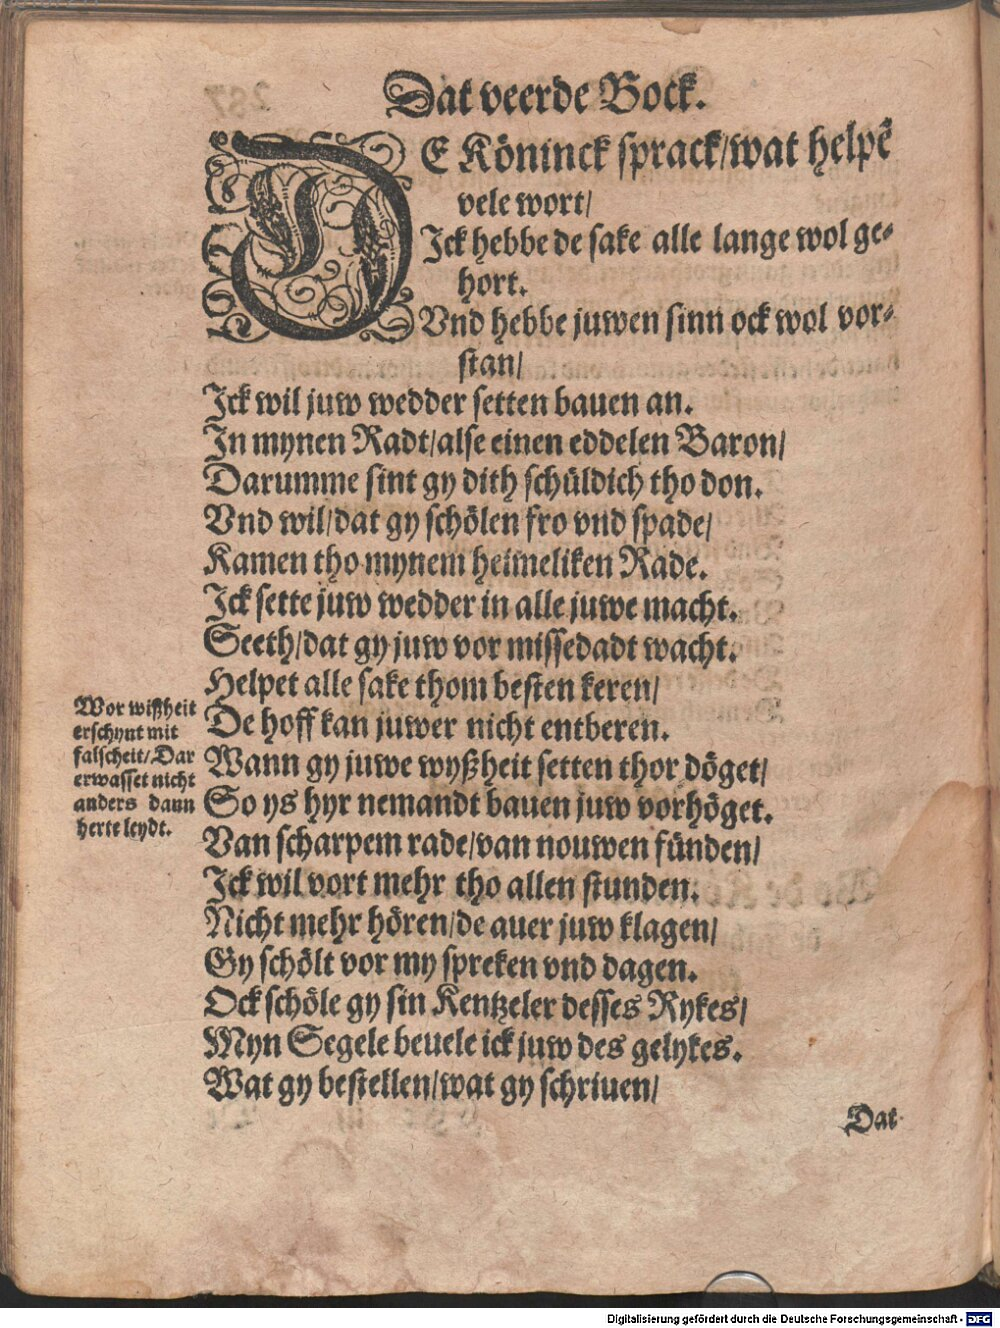 Dat veerde Bock.
DE Köninck sprack/wat helpẽ
vele wort/
Ick hebbe de sake alle lange wol ge⸗
hort.
Vnd hebbe juwen sinn ock wol vor⸗
stan/
Ick wil juw wedder setten bauen an.
In mynen Radt/alse einen eddelen Baron/
Darumme sint gy dith schüldich tho don.
Vnd wil/dat gy schölen fro vnd spade/
Kamen tho mynem heimeliken Rade.
Ick sette juw wedder in alle juwe macht.
Seeth/dat gy juw vor missedadt wacht.
Helpet alle sake thom besten keren/
De hoff kan juwer nicht entberen.
Wann gy juwe wyßheit setten thor döget/
So ys hyr nemandt bauen juw vorhöget.
Van scharpem rade/van nouwen fünden/
Ick wil vort mehr tho allen stunden.
Nicht mehr hören/de auer juw klagen/
Gy schölt vor my spreken vnd dagen.
Ock schöle gy sin Kentzeler desses Rykes/
Myn Segele beuele ick juw des gelykes.
Wat gy bestellen/wat gy schriuen/
Dat
Wor wißheit
erschynt mit
falscheit/Dar
erwasset nicht
anders dann
herte leydt.
Digitalisierung gefördert durch die Deutsche Forschungsgemeinschaft - DFG